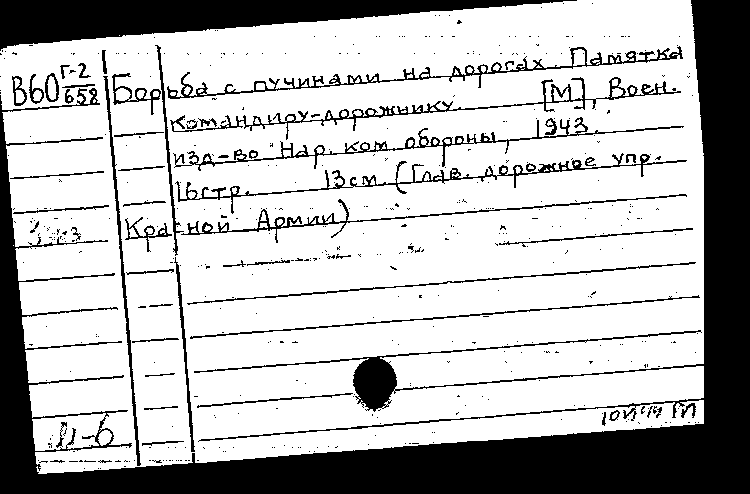 В60 Г-2/658 Борьба с пучинами на дорогах. Памятка
командиру-дорожнику. [М], Воен.
изд-во Нар. ком. обороны, 1943.
16стр. 13см. (Глав. дорожное упр.
Красной Армии)